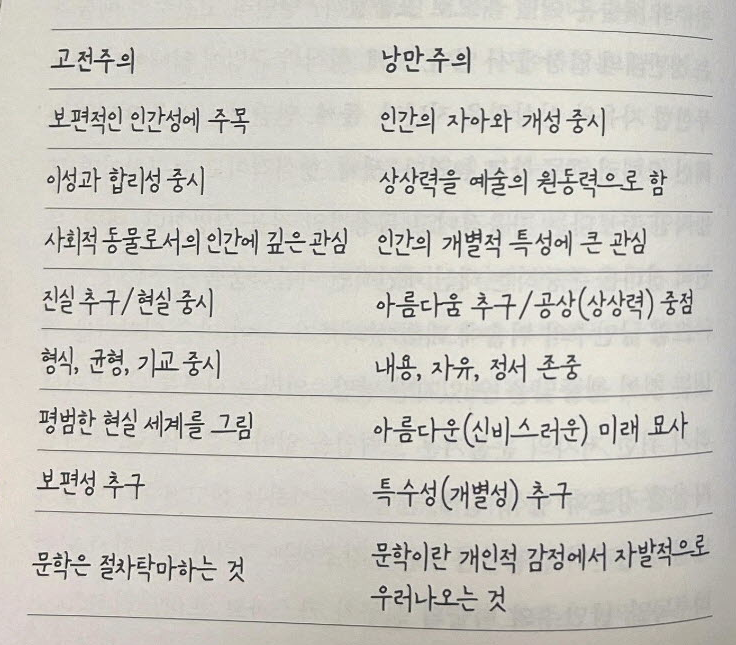 고전주의 낭만주의
보편적인 인간성에 주목 인간의 자아와 개성 중시
이성과 합리성 중시 상상력을 예술의 원동력으로 함
사회적 동물로서의 인간에 깊은 관심 인간의 개별적 특성에 큰 관심
진실 추구/현실 중시 아름다움 추구/공상(상상력) 중점
형식, 균형, 기교 중시 내용, 자유, 정서 존중
평범한 현실 세계를 그림 아름다운(신비스러운) 미래 묘사
보편성 추구 특수성(개별성) 추구
문학은 절차탁마하는 것 문학이란 개인적 감정에서 자발적으로
우러나오는 것